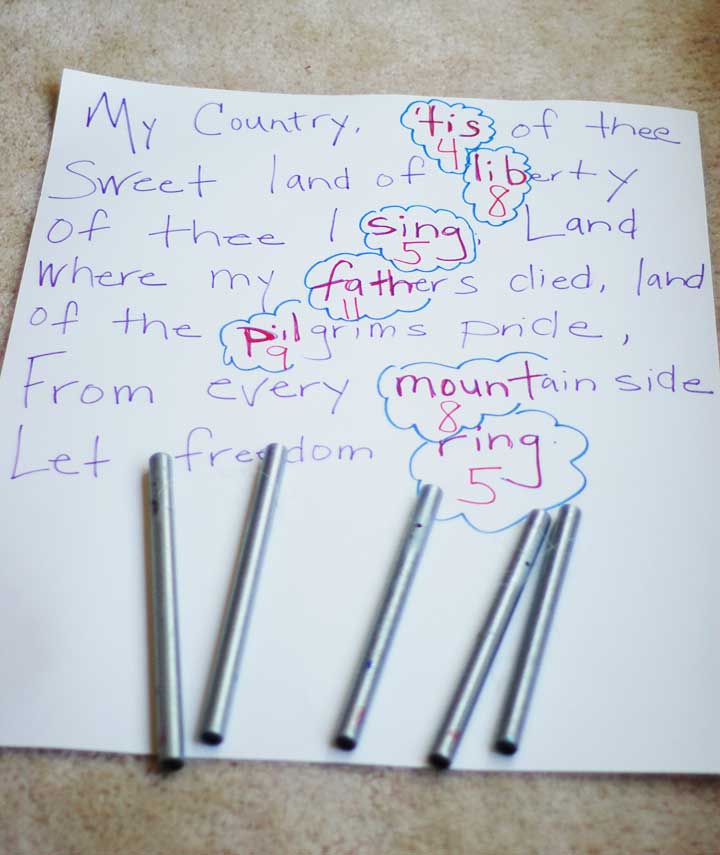 My Country, 'tis of thee
4
Sweet land of liberty
8
Of thee I sing, Land
5
where my fathers died, land
11
of the pilgrims pride,
9
From every mountain side
8
Let freedom ring.
5